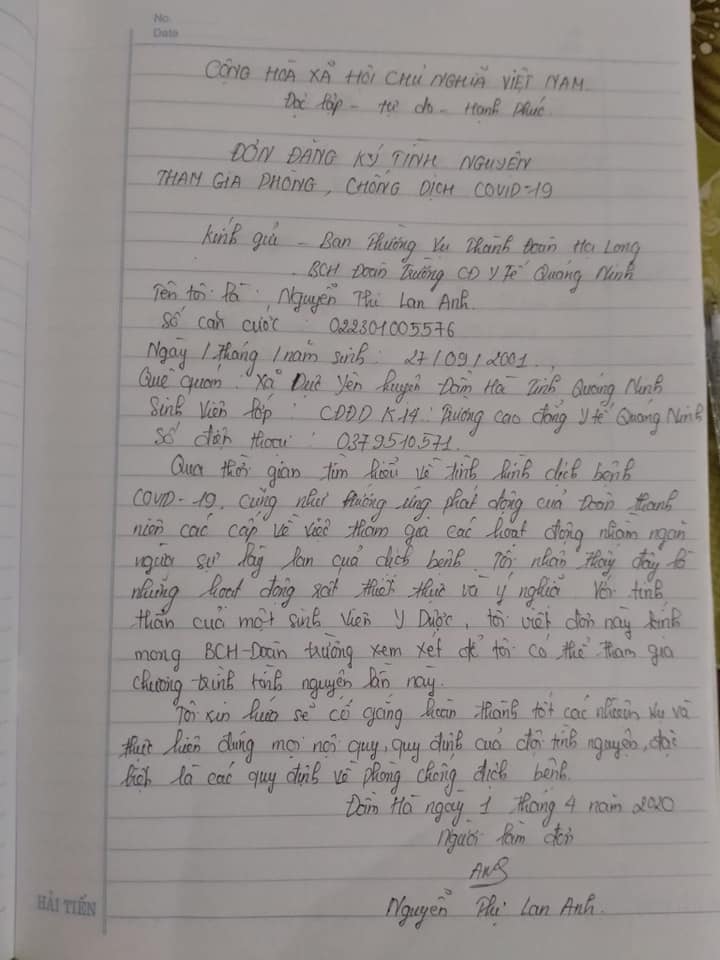 No.
Date
CỘNG HOÀ XÃ HỘI CHỦ NGHĨA VIỆT NAM
Độc lập - tự do - Hạnh phúc
ĐƠN ĐĂNG KÝ TÌNH NGUYỆN
THAM GIA PHÒNG, CHỐNG DỊCH COVID-19
Kính gửi - Ban Thường Vụ Thành Đoàn Hạ Long
- BCH Đoàn Trường CĐ Y Tế Quảng Ninh
Tên tôi là : Nguyễn Thị Lan Anh
Số căn cước : 022301005576
Ngày / tháng / năm sinh : 27/09/2001
Quê quán : Xã Dực Yên huyện Đầm Hà Tỉnh Quảng Ninh
Sinh viên lớp : CĐĐD K14 : Trường cao đẳng Y tế Quảng Ninh
Số điện thoại : 0379510571.
Qua thời gian tìm hiểu về tình hình dịch bệnh
COVID-19, cũng như hưởng ứng phát động của Đoàn thanh
niên các cấp về việc tham gia các hoạt động nhằm ngăn
ngừa sự lây lan của dịch bệnh. Tôi nhận thấy đây là
những hoạt động rất thiết thực và ý nghĩa. Với tinh
thần của một sinh viên Y Dược, tôi viết đơn này kính
mong BCH-Đoàn trường xem xét để tôi có thể tham gia
chương trình tình nguyện lần này.
Tôi xin hứa sẽ cố gắng hoàn thành tốt các nhiệm vụ và
thực hiện đúng mọi nội quy, quy định của đội tình nguyện, đặc
biệt là các quy định về phòng chống dịch bệnh.
Đầm Hà ngày 1 tháng 4 năm 2020
Người làm đơn
Anh
Nguyễn Thị Lan Anh.
HẢI TIẾN